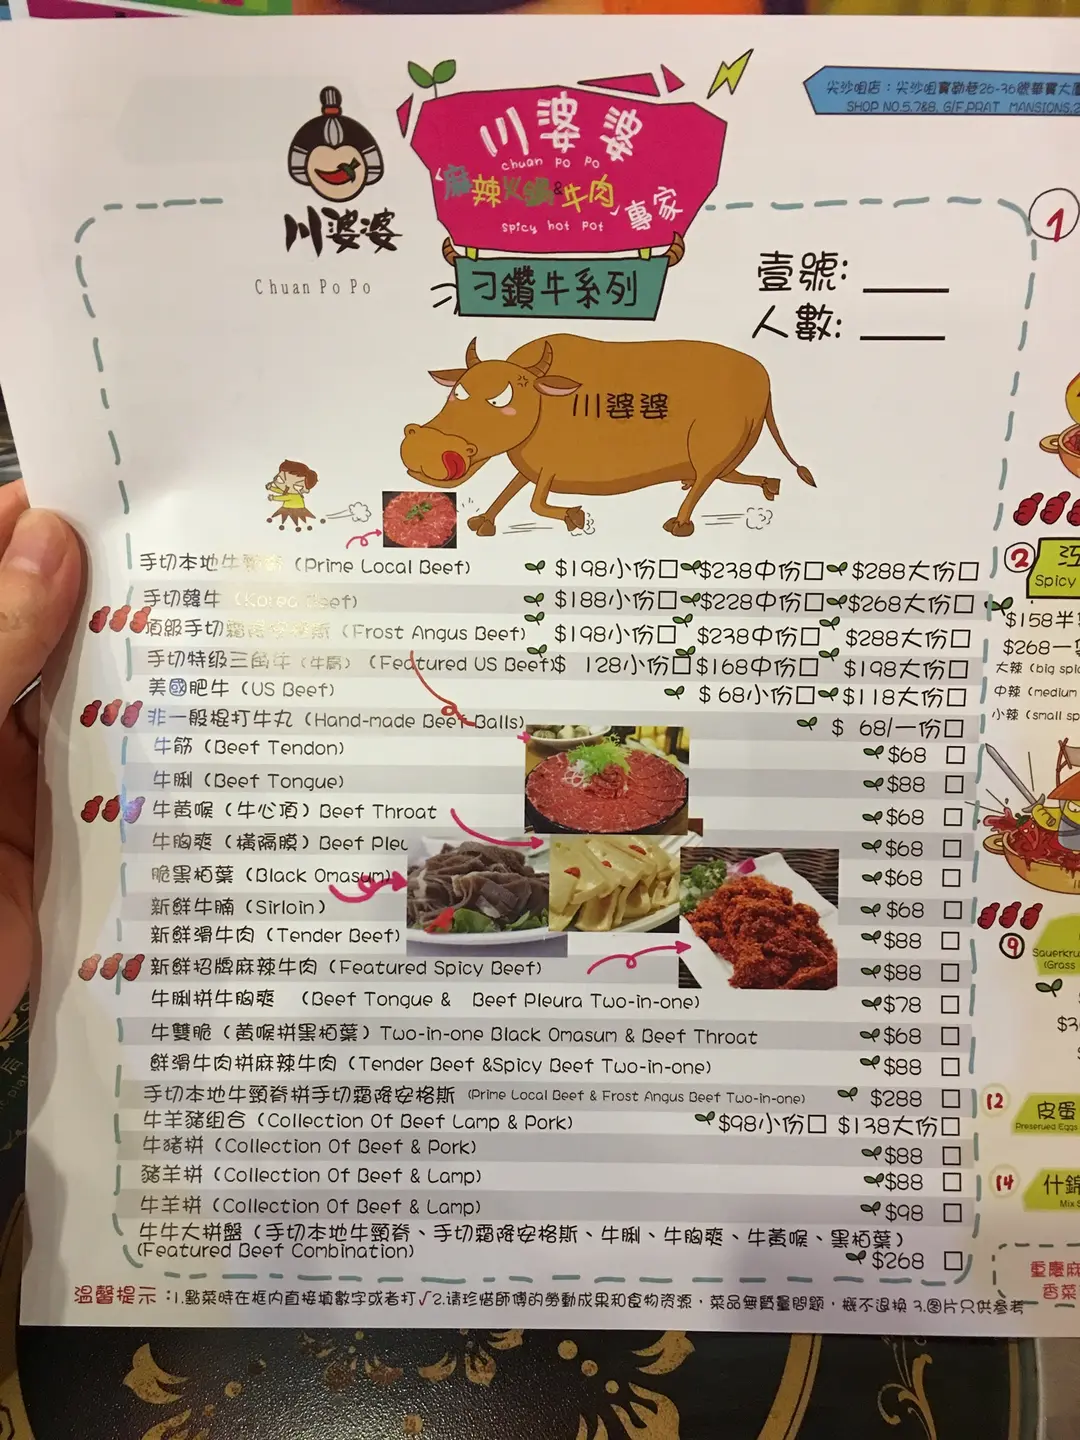 尖沙咀店：尖沙咀寶勒巷26-36號華寶大廈
SHOP NO.5,7&8, G/F,PRAT MANSIONS,2
川婆婆
chuan po po
麻辣火鍋&牛肉
專家
spicy hot pot
刁鑽牛系列
川婆婆
Chuan Po Po
壹號:
人數:
川婆婆
手切本地牛頸脊 (Prime Local Beef) $198小份 $238中份 $288大份
手切韓牛 (Korea Beef) $188小份 $228中份 $268大份
頂級手切霜降安格斯 (Frost Angus Beef) $198小份 $238中份 $288大份
手切特級三角牛 (牛肩) (Featured US Beef) $ 128小份 $168中份 $198大份
美國肥牛 (US Beef) $ 68小份 $118大份
非一般棍打牛丸 (Hand-made Beef Balls) $ 68/一份
牛筋 (Beef Tendon) $68
牛脷 (Beef Tongue) $88
牛黃喉 (牛心頂) Beef Throat $68
牛胸爽 (橫隔膜) Beef Pleu $68
脆黑栢葉 (Black Omasum) $68
新鮮牛腩 (Sirloin) $68
新鮮滑牛肉 (Tender Beef) $88
新鮮招牌麻辣牛肉 (Featured Spicy Beef) $88
牛脷拼牛胸爽 (Beef Tongue & Beef Pleura Two-in-one) $78
牛雙脆 (黃喉拼黑栢葉) Two-in-one Black Omasum & Beef Throat $68
鮮滑牛肉拼麻辣牛肉 (Tender Beef &Spicy Beef Two-in-one) $88
手切本地牛頸脊拼手切霜降安格斯 (Prime Local Beef & Frost Angus Beef Two-in-one) $288
牛羊豬組合 (Collection Of Beef Lamp & Pork) $98小份 $138大份
牛豬拼 (Collection Of Beef & Pork) $88
豬羊拼 (Collection Of Beef & Lamp) $88
牛羊拼 (Collection Of Beef & Lamp) $98
牛牛大拼盤 (手切本地牛頸脊、手切霜降安格斯、牛脷、牛胸爽、牛黃喉、黑栢葉)
(Featured Beef Combination) $268
溫馨提示：1.點菜時在框內直接填數字或者打√2.请珍惜師傅的勞動成果和食物資源，菜品無質量問題，概不退換 3.图片只供參考
1
2
Spicy
$158半
$268一
大辣 (big spic
中辣 (medium
小辣 (small sp
9
Sauerkru
(Grass
12
皮蛋
Preserved Eggs
14
什錦
Mix
重慶麻
香菜